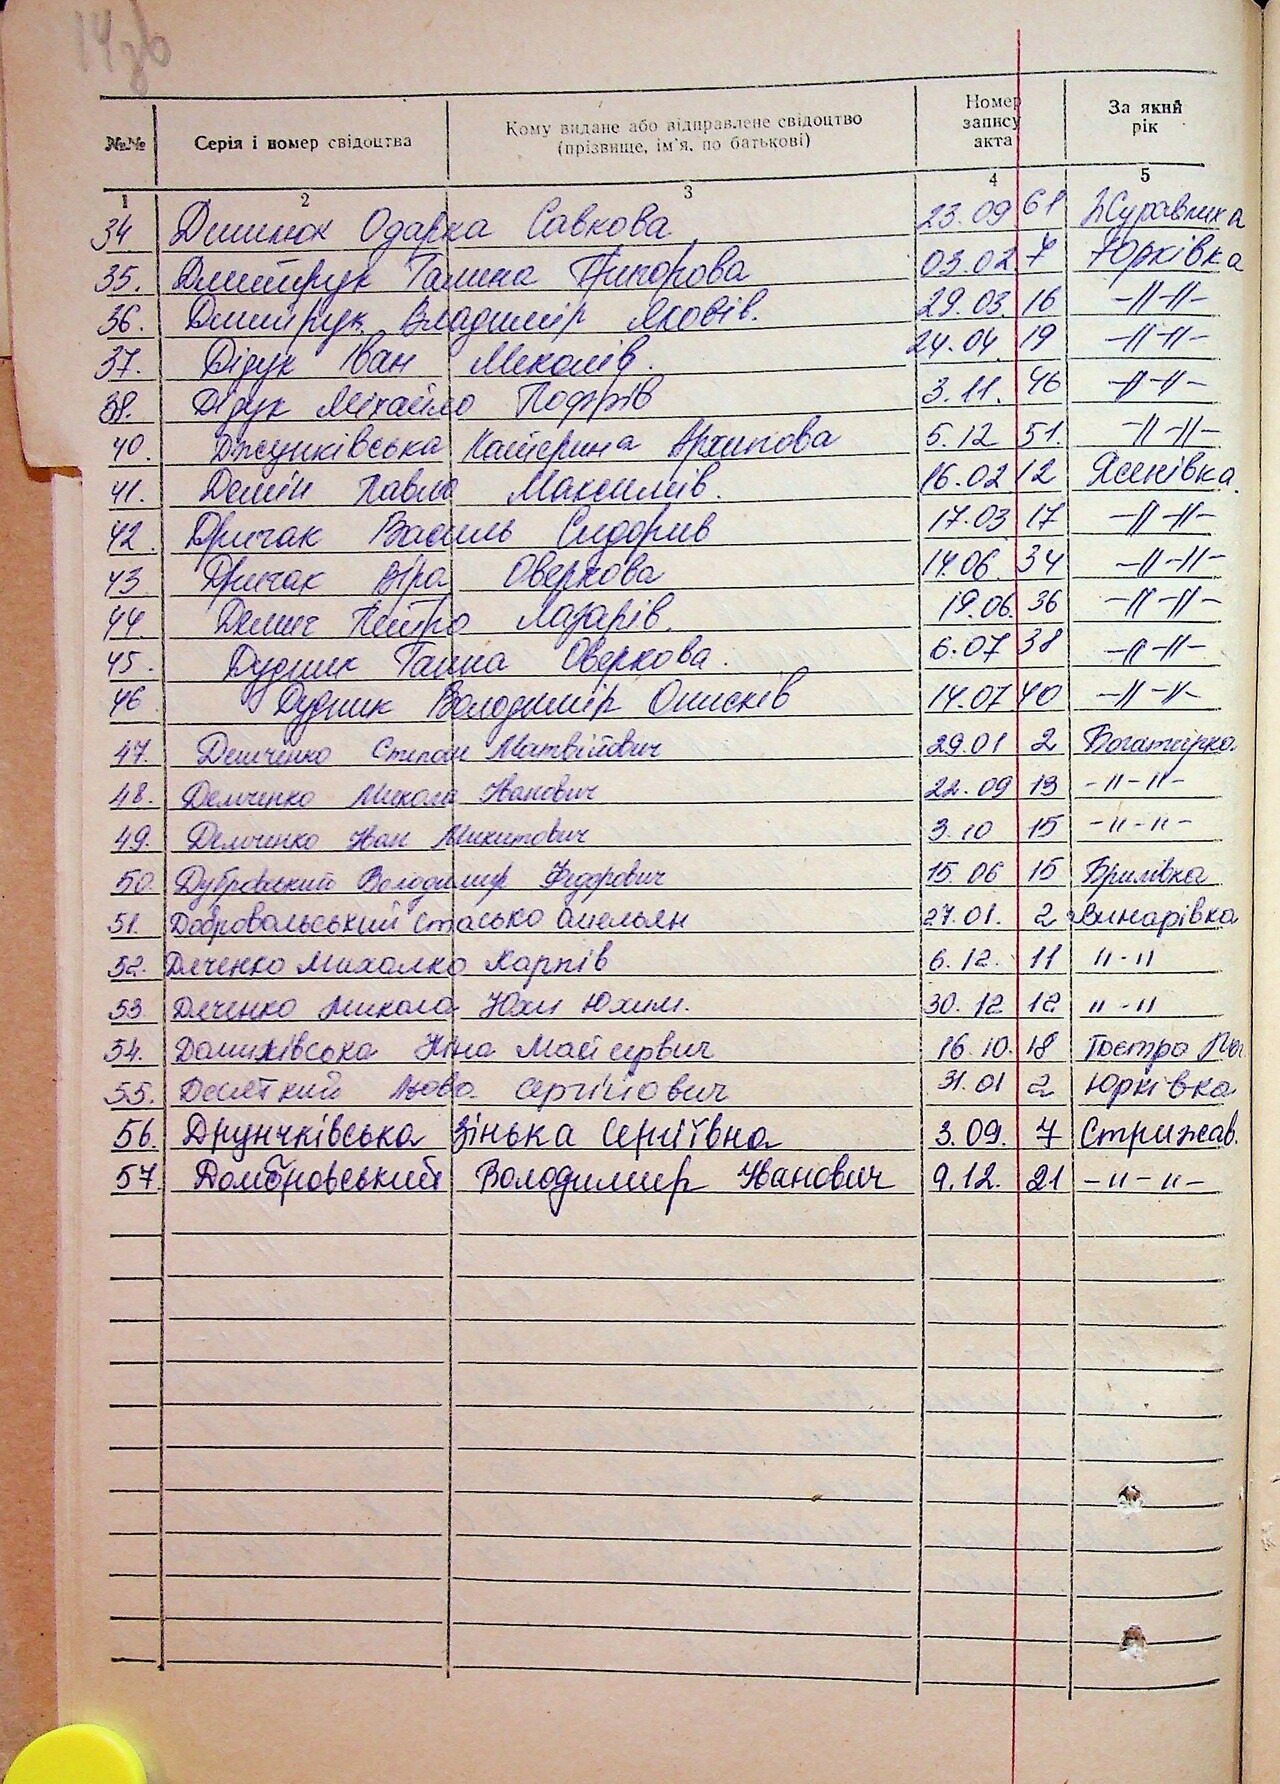 14зв
№№ Серія і номер свідоцтва Кому видане або відправлене свідоцтво (прізвище, ім'я, по батькові) Номер запису акта За який рік
1 2 3 4 5
34 Одарка Савкова 23.09 61 Журавлиха
35. Дмитрук Галина 03.02 7 Юрківка
36. Дмитрук Владимір Яковів. 29.03 16 -//-//-
37. Дідук Іван Миколів. 24.04. 19 -//-//-
38. Дідук Міхайло 3.11. 46 -//-//-
40. Джунківська Катерина Архипова 5.12 51. -//-//-
41. Демін Павло Максимів. 16.02 12 Яснівка.
42. Дричак Василь Сидорив 17.03 17 -//-//-
43 Дричак Віра Оверкова 14.06. 34 -//-//-
44. Петро Лазарів. 19.06. 36 -//-//-
45. Дудник Ганна Оверкова. 6.07 38 -//-//-
46 Дудник Володимір Онисків 14.07 40 -//-//-
47. Демченко Степан Матвійович 29.01 2 Богатирка
48. Демченко Микола Іванович 22.09 13 -//-//-
49. Демченко Іван Микитович 3.10 15 -//-//-
50. Дубровский Володимир Федорович 15.06 15 Брилівка
51. Добровальський Стасько Амельян 27.01. 2 Винарівка
52. Дяченко Михалко Карпів 6.12. 11 //-//
53. Дяченко Микола Юхи Юхим. 30.12 12 //-//
54. Ніна 16.10. 18 Гостра
55. Десяткий Льова Сергійович 31.01 2 Юрківка
56. Друнчківська Зінька Сергіївна 3.09. 7 Стрижав.
57. Домбровський Володимир Іванович 9.12. 21 -//-//-